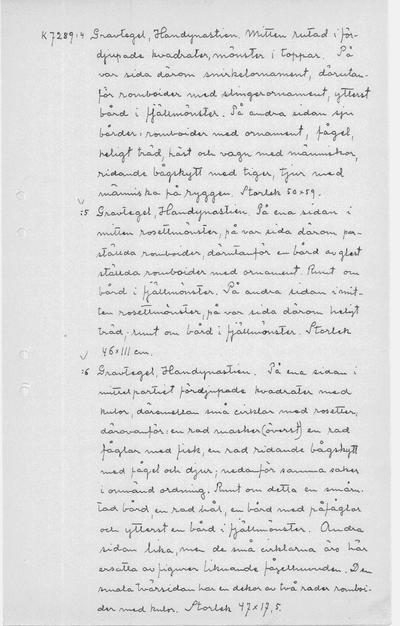 K 7289:4 Gravtegel, Handynastien. Mitten rutad i för-
djupade kvadrater, mönster i toppar. På
var sida därom snirkelornament, därutan-
för romboider med slingerornament, ytterst
bård i fjällmönster. På andra sidan sju
bårder: romboider med ornament, fågel,
heligt träd, häst och vagn med människor,
ridande bågskytt med tiger, tjur med
människa på ryggen. Storlek 50×59.
:5 Gravtegel, Handynastien. På ena sidan i
mitten rosettmönster, på var sida därom par-
ställda romboider, därutanför en bård av glest
ställda romboider med ornament. Runt om
bård i fjällmönster. På andra sidan i mit-
ten rosettmönster, på var sida därom heligt
träd, runt om bård i fjällmönster. Storlek
46×111 cm.
:6 Gravtegel, Handynastien. På ena sidan i
mittelpartiet fördjupade kvadrater med
kulor, däremellan små cirklar med rosetter,
däravanför: en rad masker (överst) en rad
fåglar med fisk, en rad ridande bågskytt
med fågel och djur; nedanför samma saker
i omvänd ordning. Runt om detta en småru-
tad bård, en rad hål, en bård med påfåglar
och ytterst en bård i fjällmönster. Andra
sidan lika, men de små cirklarna äro här
ersatta av figurer liknande fågelhuvuden. Den
smala tvärsidan har en dekor av två rader romboi-
der med kulor. Storlek 47×17,5.